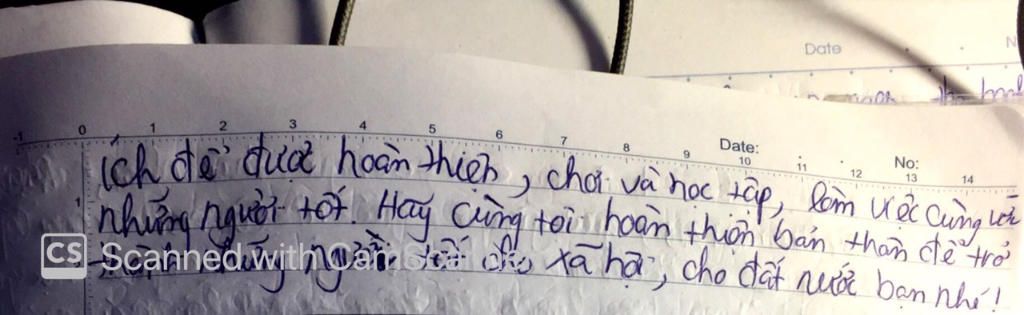 Date
N
-1 0 1 2 3 4 5 6 7 8 9 10 11 12 13 14
Date: No:
ích để được hoàn thiện, chơi và học tập, làm việc cùng với
1
những người tốt. Hãy cùng tôi hoàn thiện bản thân để trở
thành những người tốt cho xã hội, cho đất nước bạn nhé!
CS Scanned with Cam